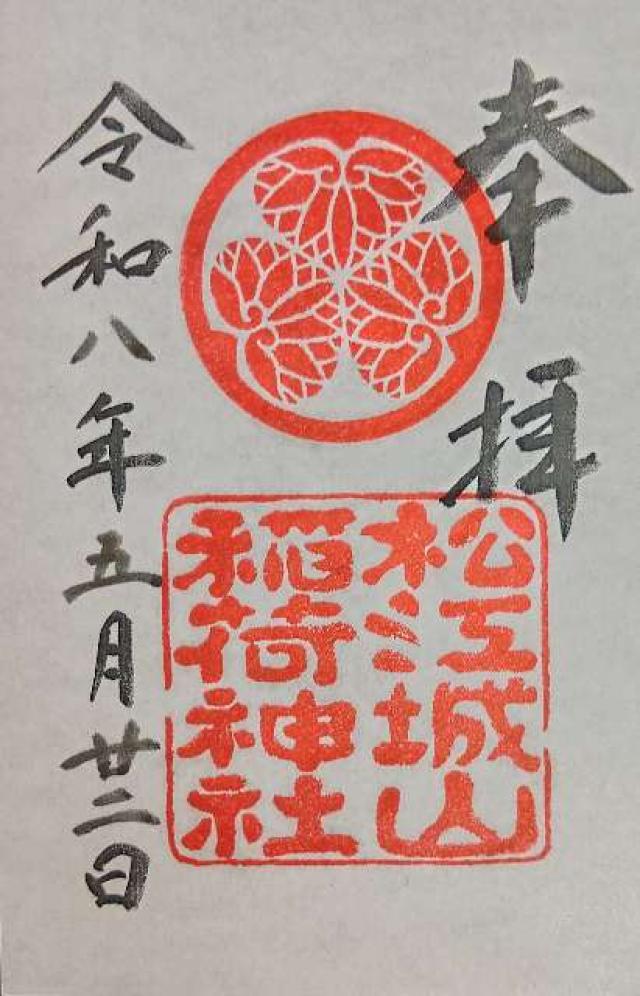 奉拝
松江城山
稲荷神社
令和八年五月廿二日